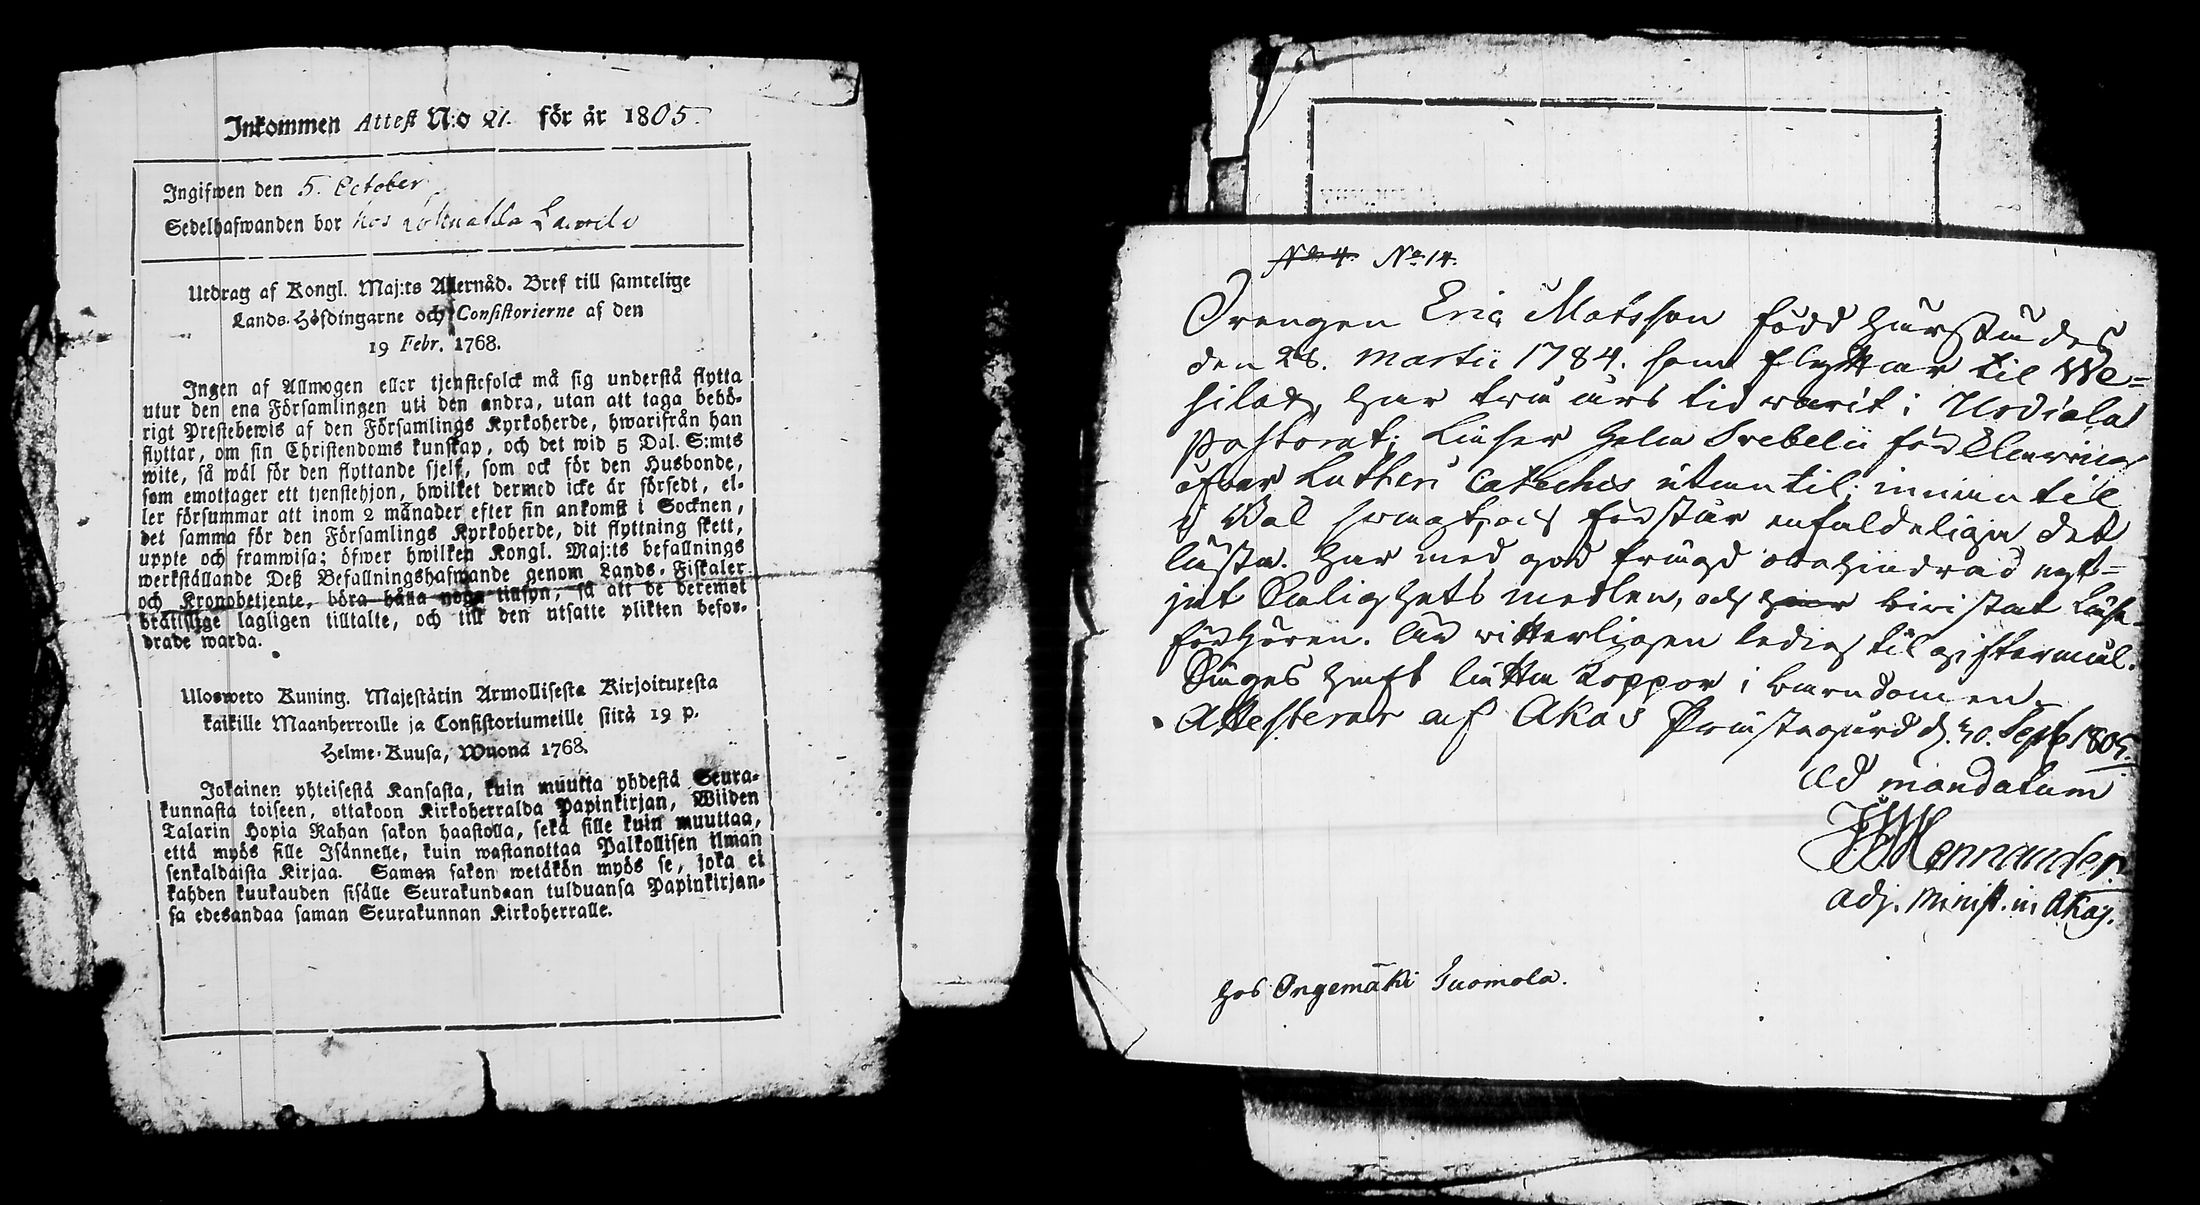 Inkommen Attest N:o 21. för år 1805.
Ingifwen den 5. October
Sedelhafwanden bor hos
Utdrag af Kongl. Maj:ts Allernåd. Bref till samtelige
Lands-Höfdingarne och Consistorierne af den
19 Febr. 1768.
Ingen af Allmogen eller tjenstefolck må sig understå flytta
utur den ena Församlingen uti den andra, utan att taga behö-
rigt Prestebewis af den Församlings Kyrkoherde, hwarifrån han
flyttar, om sin Christendoms kunskap, och det wid 5 Dal. S:mts
wite, så wäl för den flyttande sjelf, som ock för den Husbonde,
som emottager ett tjenstehjon, hwilket dermed icke är försedt, el-
ler försummar att inom 2 månader efter sin ankomst i Socknen,
det samma för den Församlings Kyrkoherde, dit flyttning skett,
uppte och framwisa; öfwer hwilken Kongl. Maj:ts befallnings
werkställande Deß Befallningshafwande genom Lands-Fiskaler
och Kronobetjente, böra hålla noga tillsyn, så att de deremot
bråttslige lagligen tilltalte, och till den utsatte plikten befor-
drade warda.
Ulosweto Kuning. Majestätin Armollisesta Kirjoituxesta
kaikille Maanherroille ja Consistoriumeille siitä 19 p.
Helme-Kuusa, Wuonä 1768.
Jokainen yhteisestä Kansasta, kuin muutta yhdestä Seura-
kunnasta toiseen, ottakoon Kirkoherralda Papinkirjan, Wiiden
Talarin Hopia Rahan sakon haastolla, sekä sille kuin muuttaa,
että myös sille Isännelle, kuin wastanottaa Palkollisen ilman
senkaldaista Kirjaa. Saman sakon wetäkön myös se, joka ei
kahden kuukauden sisälle Seurakundaan tulduansa Papinkirjan-
sa edesandaa saman Seurakunnan Kirkoherralle.
N:o 4. N:o 14.
Drengen Eric Matsson född härstädes
den 28. Martii 1784. som flyttar til We-
silax, har twå års tid warit i Urdiala
Pastorat; Läser hela Svebelii förklaring
öfver Lutheri Cateches utantil; innantil
i Bok swagt, och förstår enfaldeligen det
lästa. Har med god frägd obehindrad nyt-
jat Salighets medlen, och har biwistat Läse-
förhören. Är witterligen ledig til giftermål.
Säges haft lätta koppor i barndomen
Attesteras af Akas Prästegård d. 30. Sept. 1805.
ad mandatum
Hennander
adj. Minist. in Akas.
hos Ongemäki Tuomola.